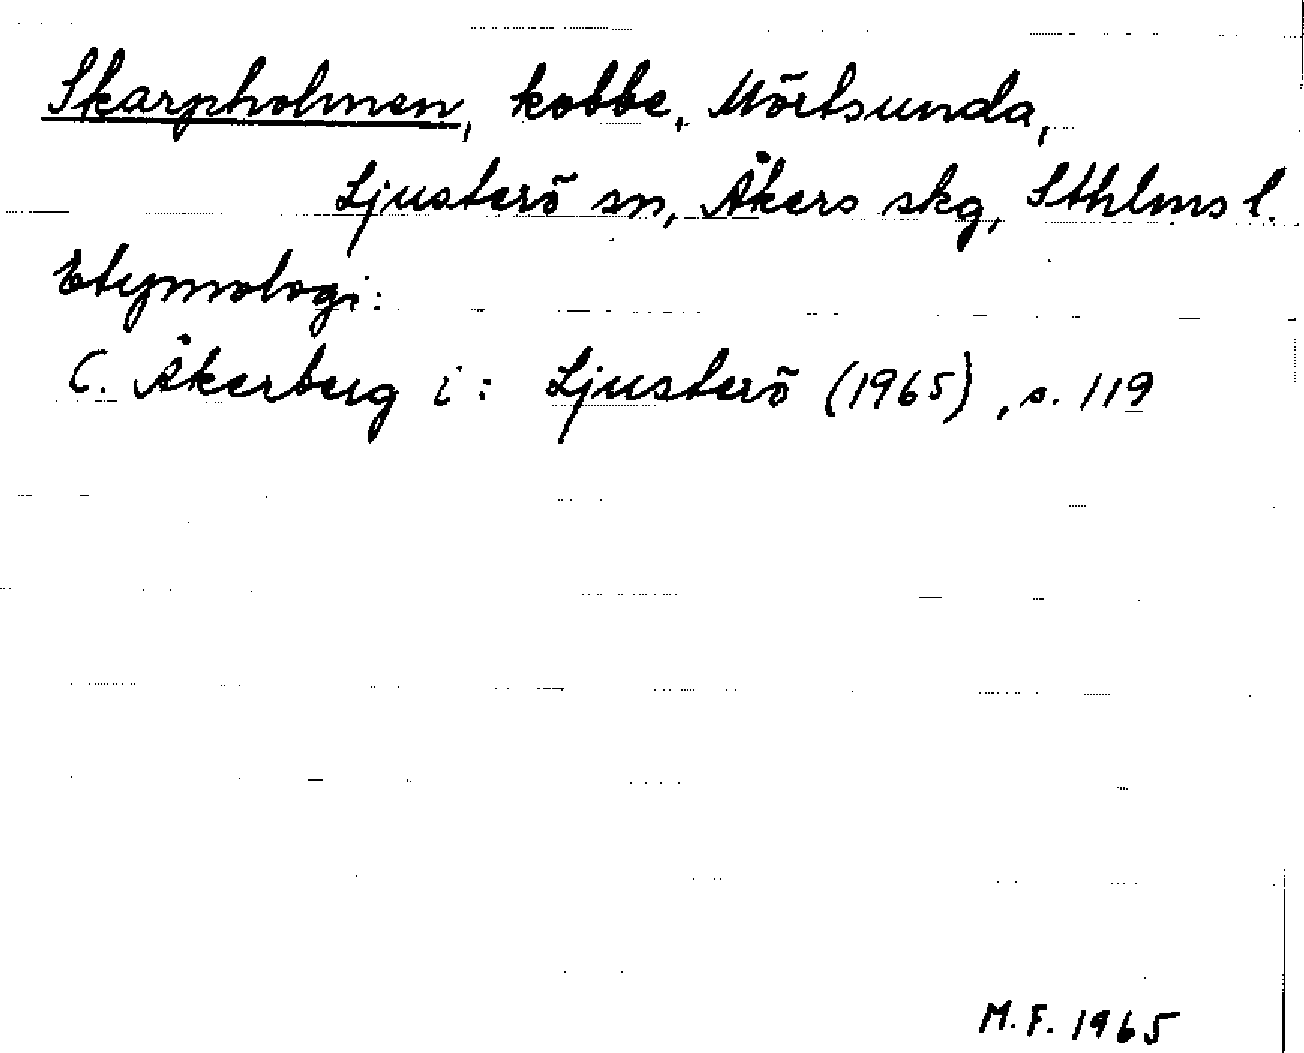 Skarpholmen, kobbe, Mörtsunda,
Ljusterö sn, Åkers skg, Sthlms l.
Etymologi:
C. Åkerberg i: Ljusterö (1965), s. 119
M.F. 1965